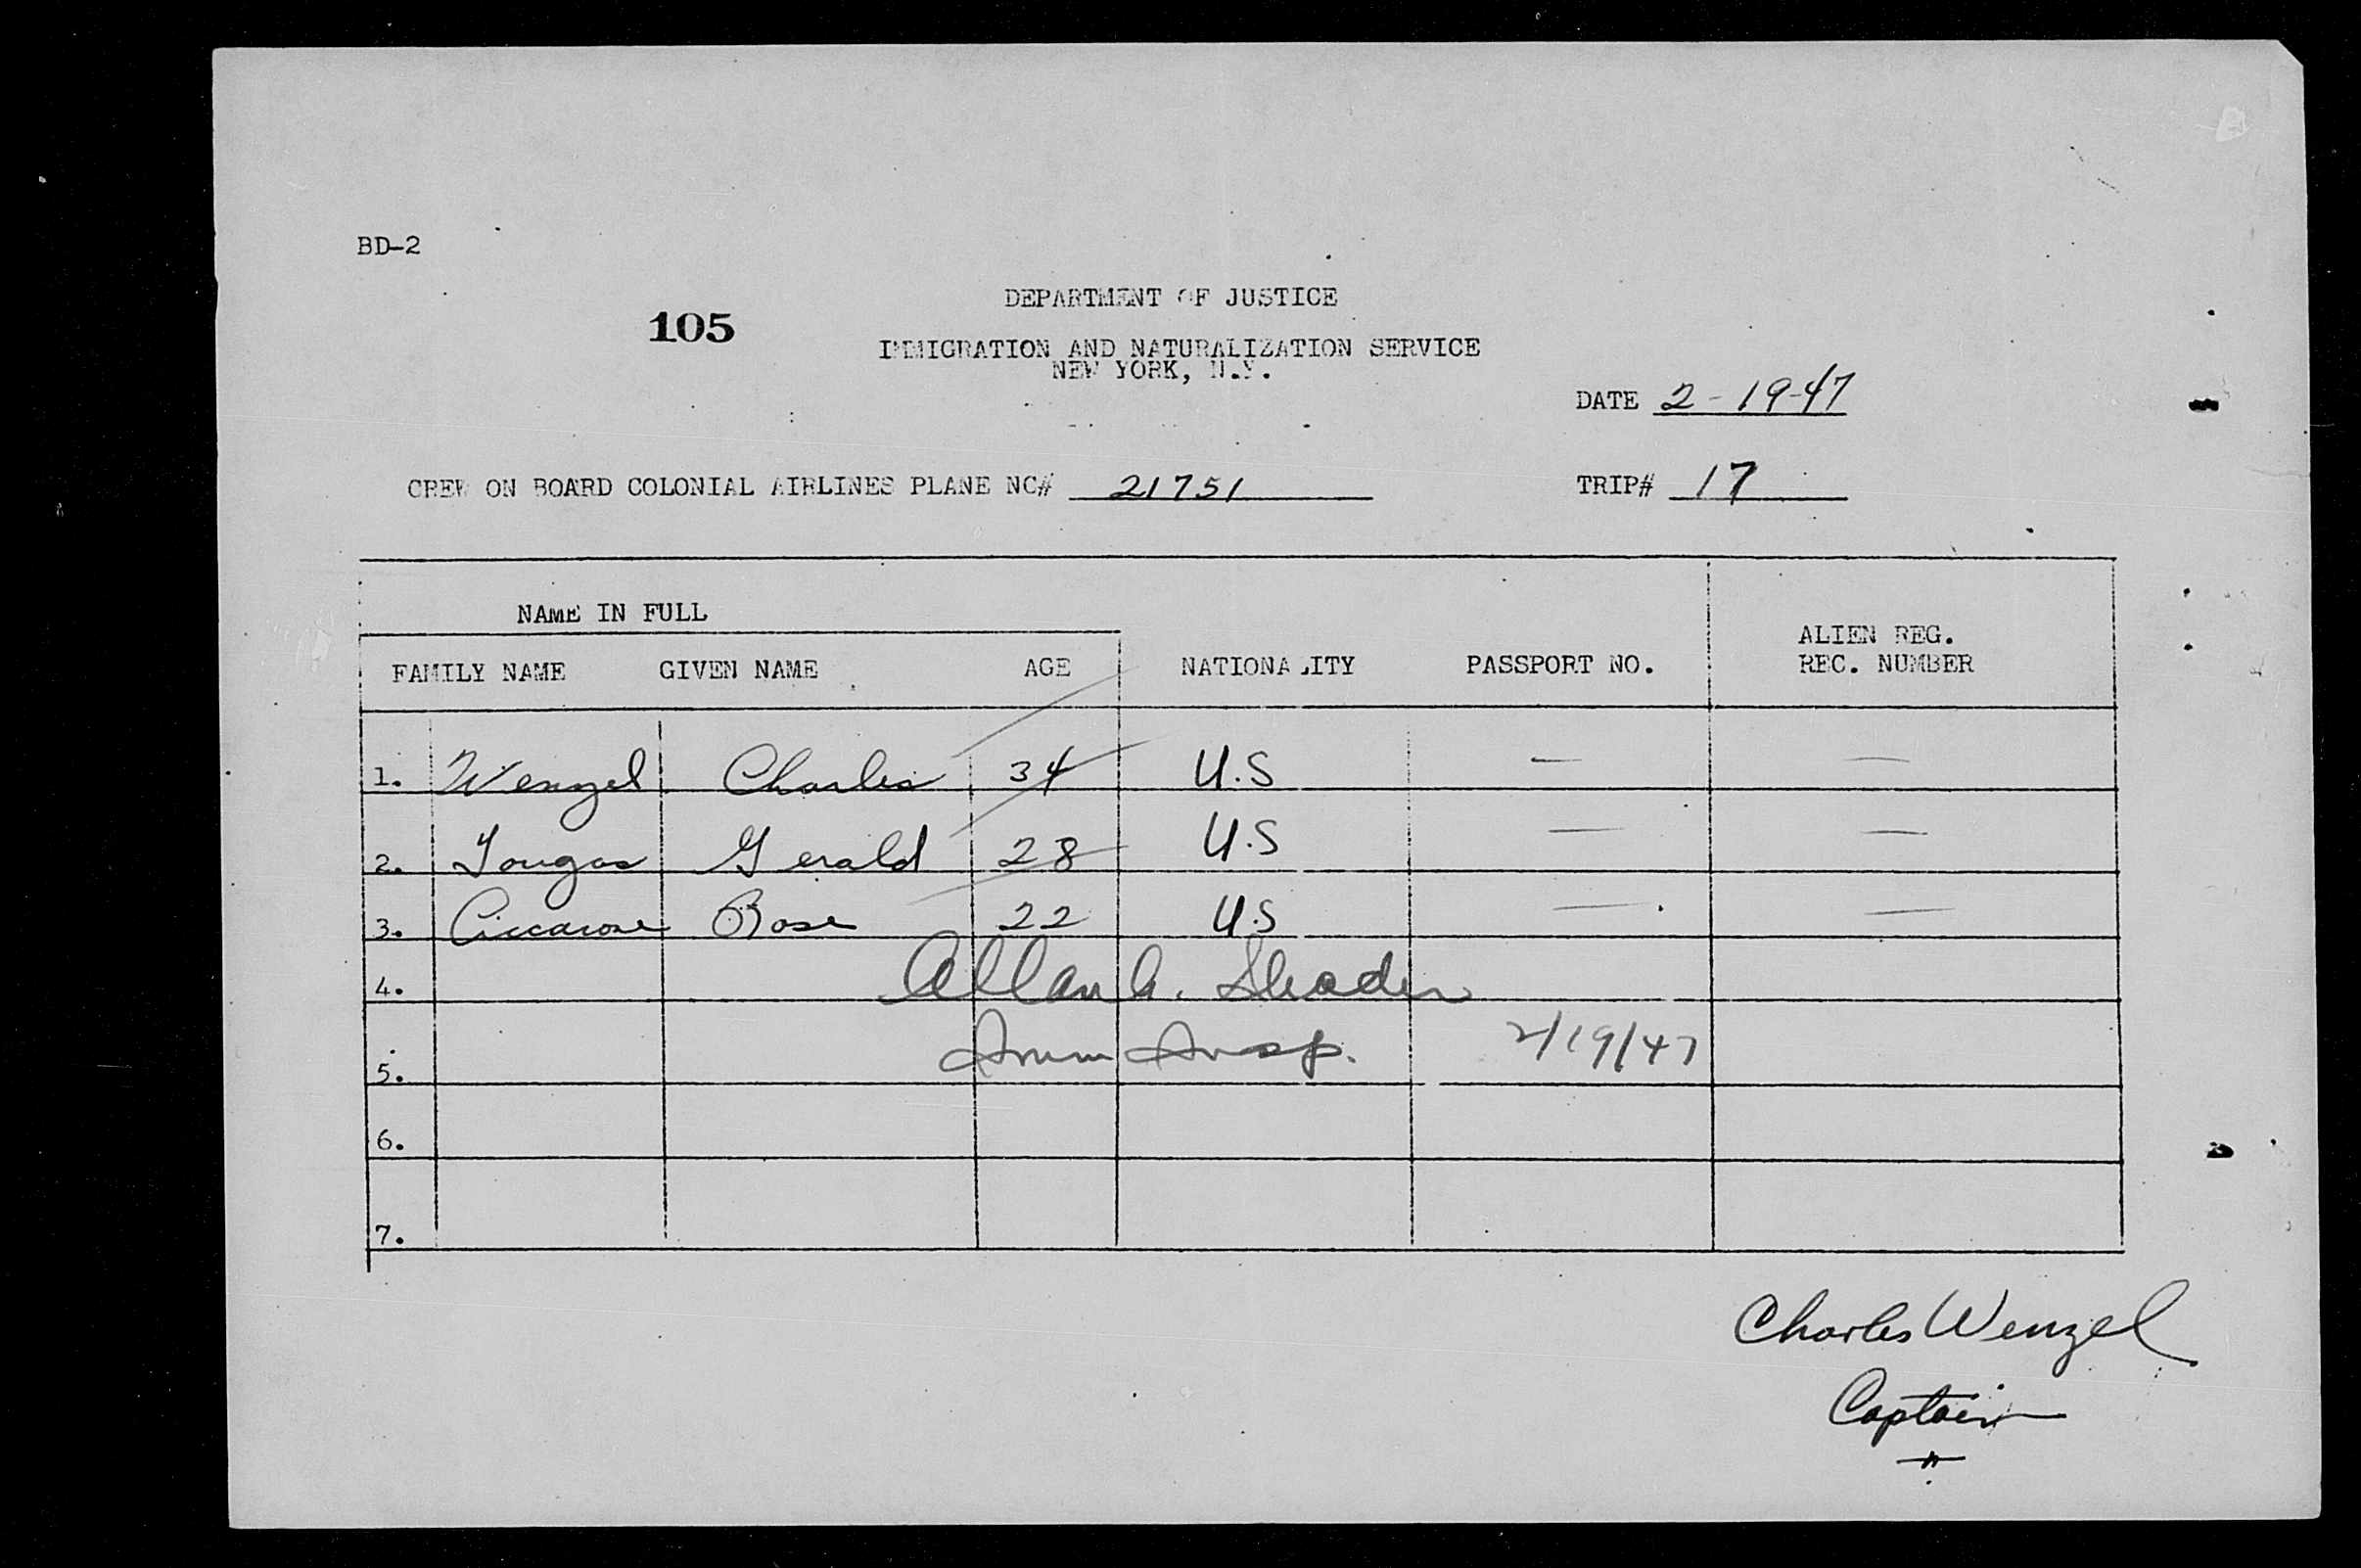 BD-2
105
DEPARTMENT OF JUSTICE
IMMIGRATION AND NATURALIZATION SERVICE
NEW YORK, N.Y.
DATE 2-19-47
CREW ON BOARD COLONIAL AIRLINES PLANE NC# 21751 TRIP# 17
NAME IN FULL
FAMILY NAME GIVEN NAME AGE NATIONALITY PASSPORT NO. ALIEN REG. REC. NUMBER
1. Wenzel Charles 34 U.S — —
2. Tougas Gerald 28 U.S — —
3. Ciccarone Rose 22 U.S — —
4. Allan
5. Imm Insp. 2/19/47
6.
7.
Charles Wenzel
Captain